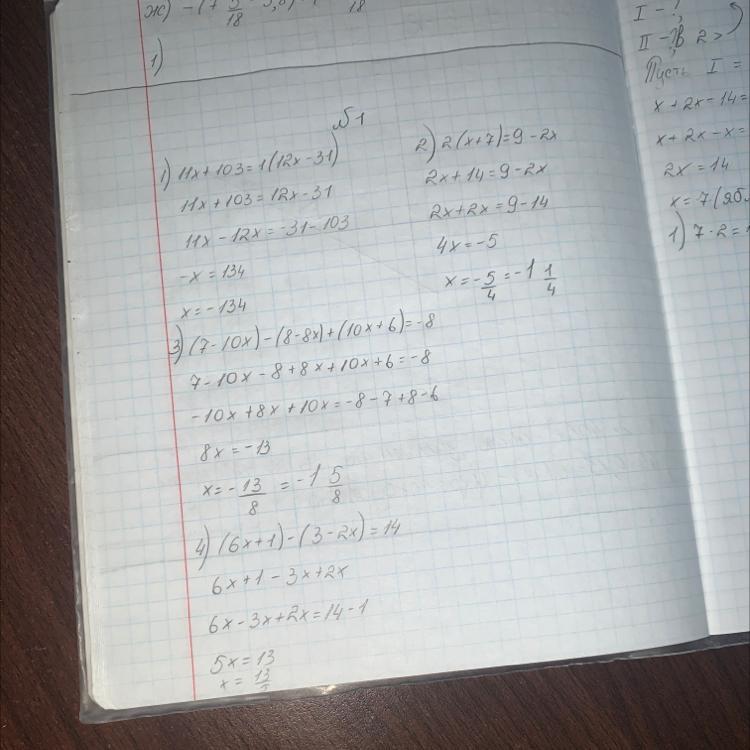 1)
№1
1) 11x+103=1(12x-31)
11x+103=12x-31
11x-12x=-31-103
-x=134
x=-134
2) 2(x+7)=9-2x
2x+14=9-2x
2x+2x=9-14
4x=-5
x=-5/4=-1 1/4
3) (7-10x)-(8-8x)+(10x+6)=-8
7-10x-8+8x+10x+6=-8
-10x+8x+10x=-8-7+8-6
8x=-13
x=-13/8=-1 5/8
4) (6x+1)-(3-2x)=14
6x+1-3x+2x
6x-3x+2x=14-1
5x=13
x=13/
I-?
II-
Пусть I=
x+2x-14=
x+2x-x=
2x=14
x=7
1) 7·2=